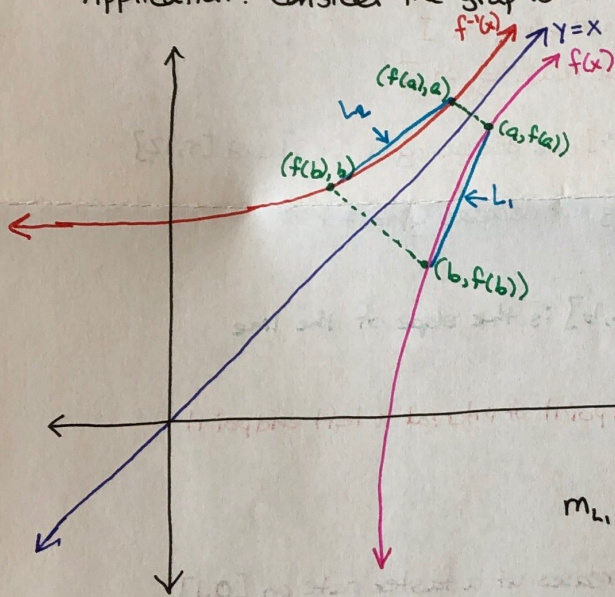 Application: Consider the graph
f⁻¹(x)
y=x
f(x)
(f(a),a)
L₂
(a,f(a))
(f(b),b)
L₁
(b,f(b))
m_L₁